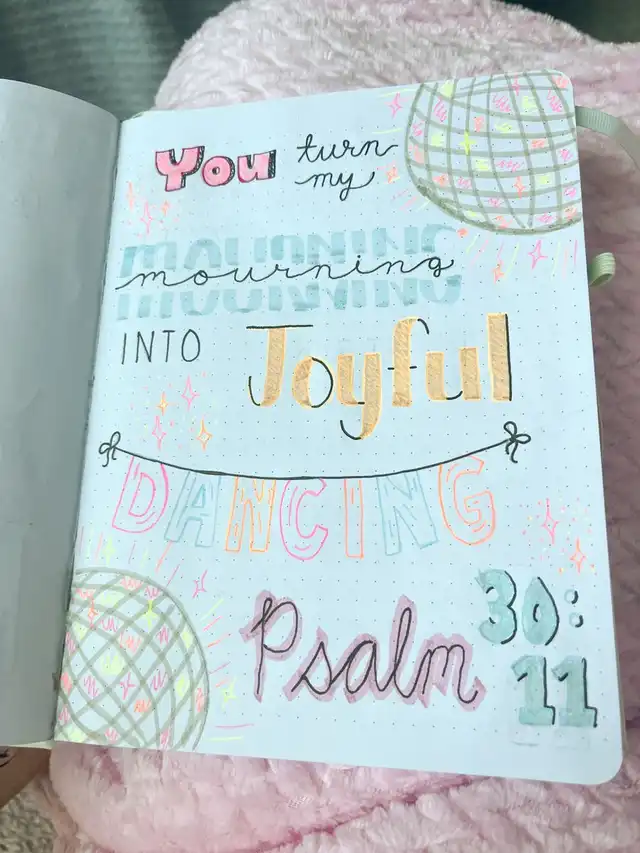 You turn
my
MOURNING
mourning
INTO Joyful
DANCING
Psalm 30:
11